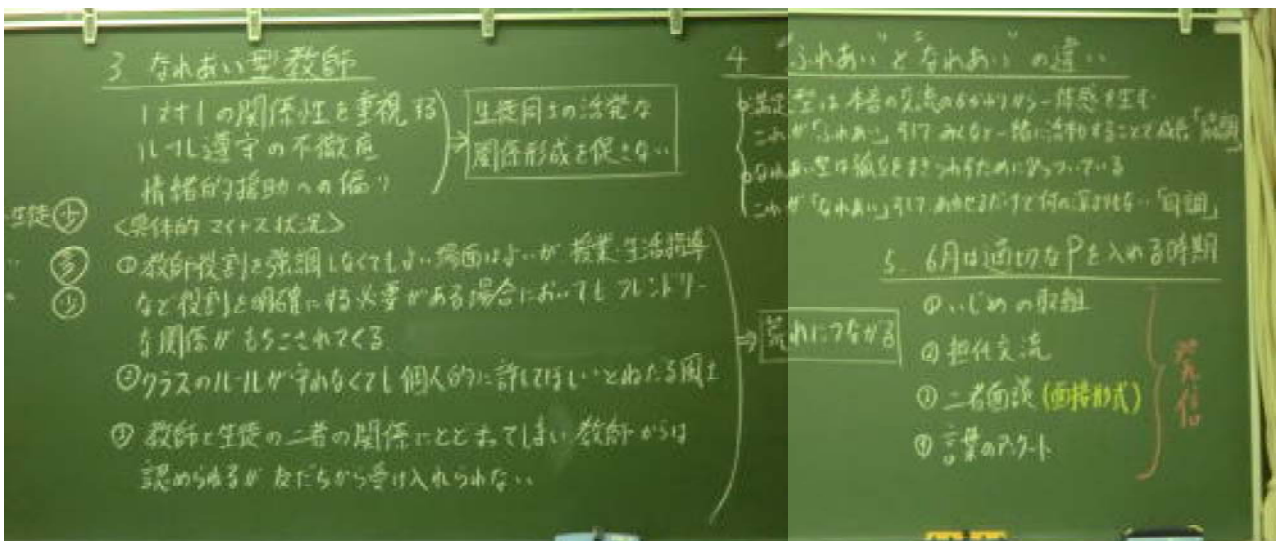 3 なれあい型教師
1対1の関係性を重視する
ルール遵守の不徹底
情緒的援助への偏り
生徒同士の活発な
関係形成を促さない
生徒 少
〃 多
〃 少
<具体的マイナス状況>
① 教師役割を強調しなくてもよい場面はよいが 授業 生活指導
など役割を明確にする必要がある場合においても フレンドリー
な関係が もちこまれてくる
②クラスのルールが守れなくても 個人的に許してほしいとねだる風土
③ 教師と生徒の二者の関係にとどまってしまい 教師からは
認められるが 友だちから受け入れられない
4 "ふれあい"と"なれあい"の違い
型は本音の交流の
一体感を生む
これが「ふれあい」
みんなと一緒に活動することで成長「協調」
なれあい型は孤立をまぎらわすためにくっついている
これが「なれあい」
あわせるだけで何の深まりもない「同調」
⇒ 荒れにつながる
5. 6月は適切なPを入れる時期
① いじめの取組
② 担任交流
③ 二者面談 (面接形式)
④ 言葉のアンケート
発信